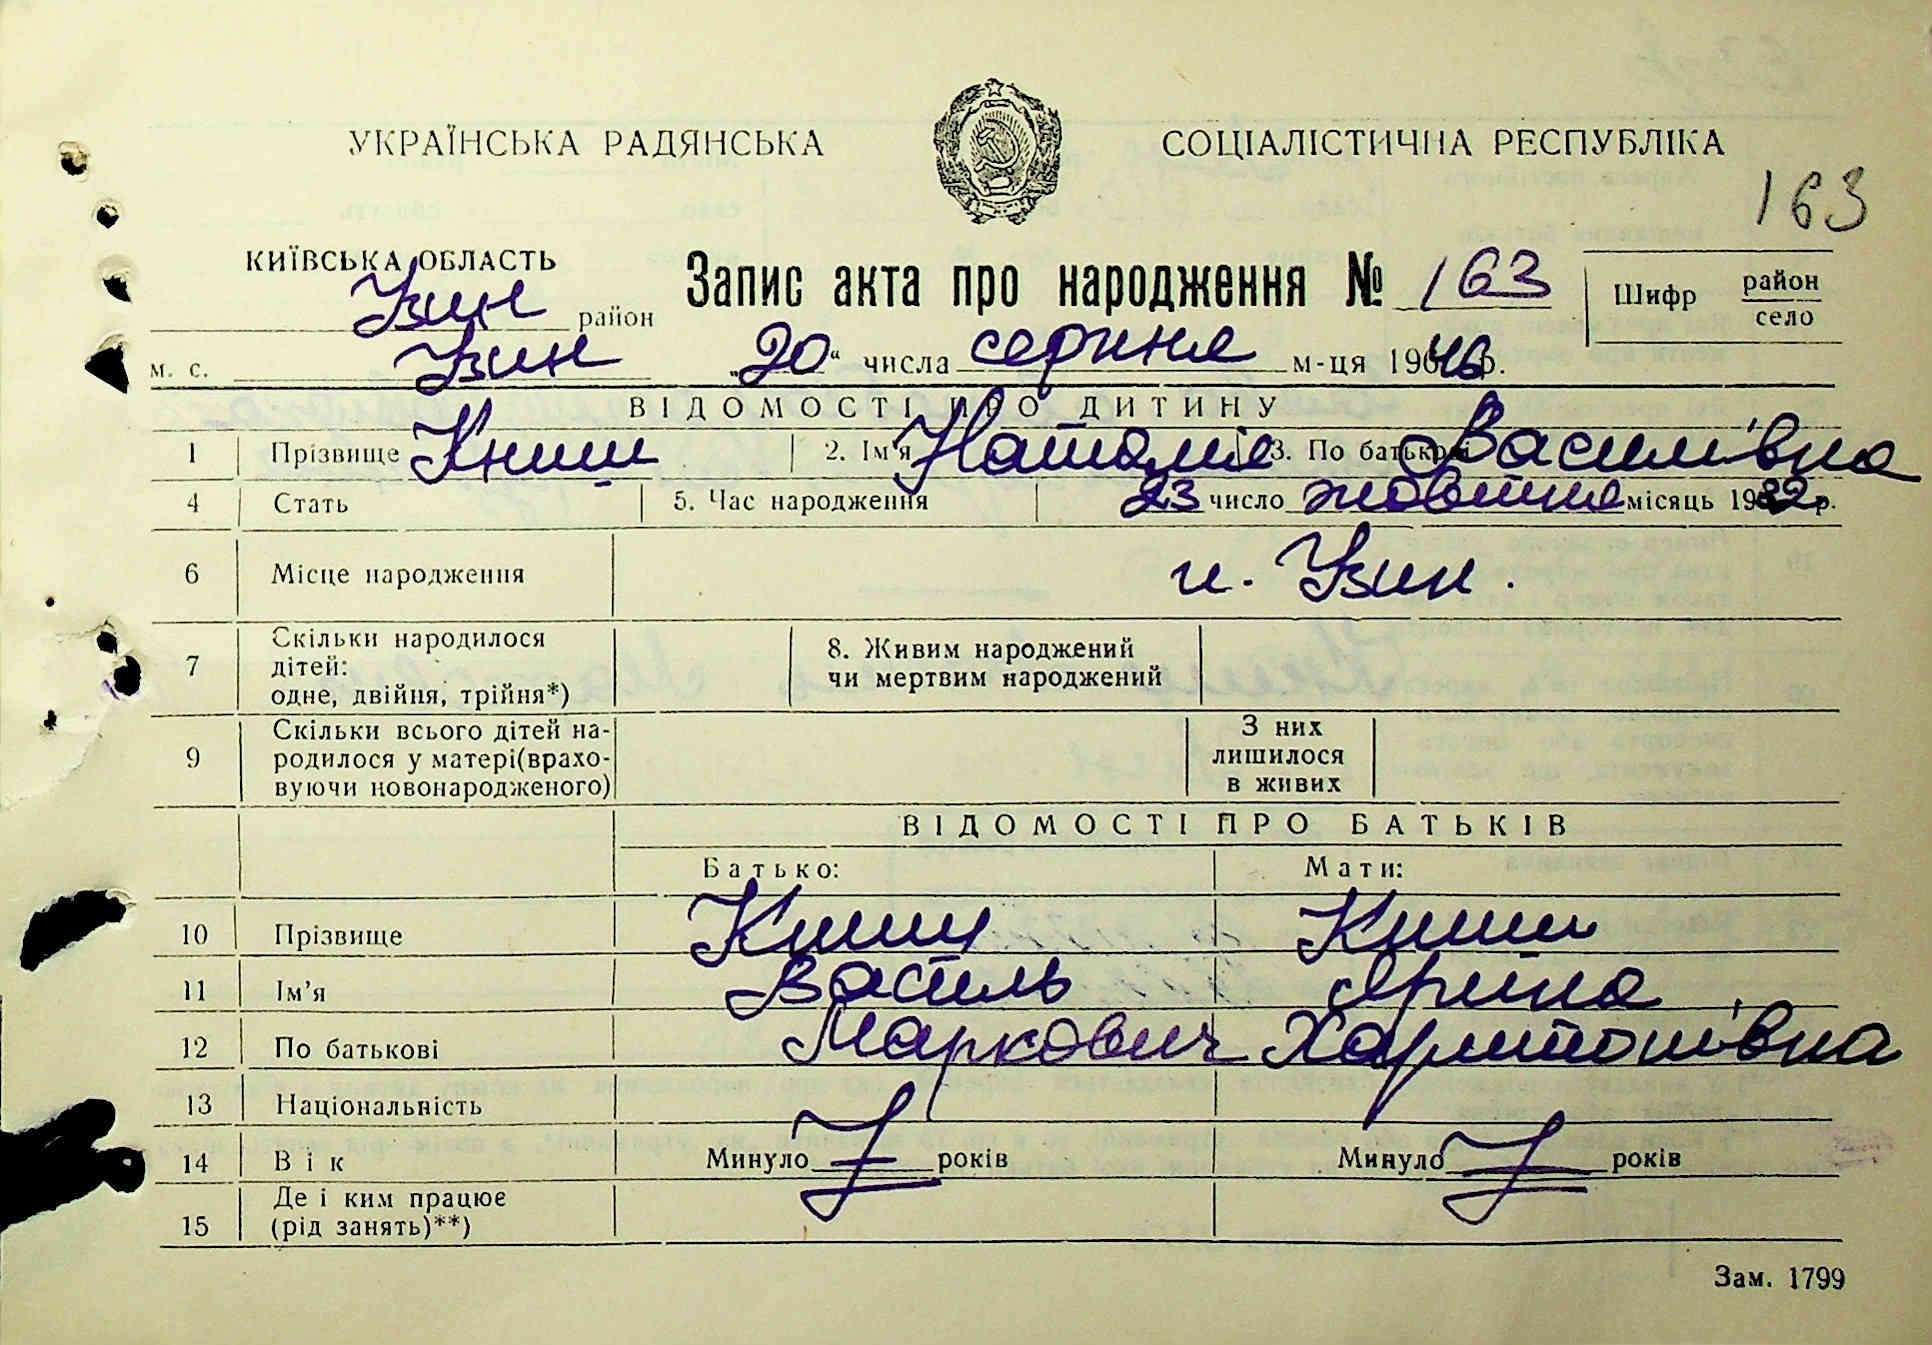 УКРАЇНСЬКА РАДЯНСЬКА СОЦІАЛІСТИЧНА РЕСПУБЛІКА
163
КИЇВСЬКА ОБЛАСТЬ
Узин район
м. с. Узин
Запис акта про народження № 163
Шифр район село
„20“ числа серпня м-ця 1946 р.
ВІДОМОСТІ ПРО ДИТИНУ
1 Прізвище Книш 2. Ім'я Наталія 3. По батькові Василівна
4 Стать 5. Час народження 23 число жовтня місяць 1932 р.
6 Місце народження м. Узин.
7 Скільки народилося дітей: одне, двійня, трійня*) 8. Живим народжений чи мертвим народжений
9 Скільки всього дітей народилося у матері(враховуючи новонародженого) З них лишилося в живих
ВІДОМОСТІ ПРО БАТЬКІВ
Батько: Мати:
10 Прізвище Книш Книш
11 Ім'я Василь Ярина
12 По батькові Маркович Харитонівна
13 Національність
14 Вік Минуло років Минуло років
15 Де і ким працює (рід занять)**)
Зам. 1799